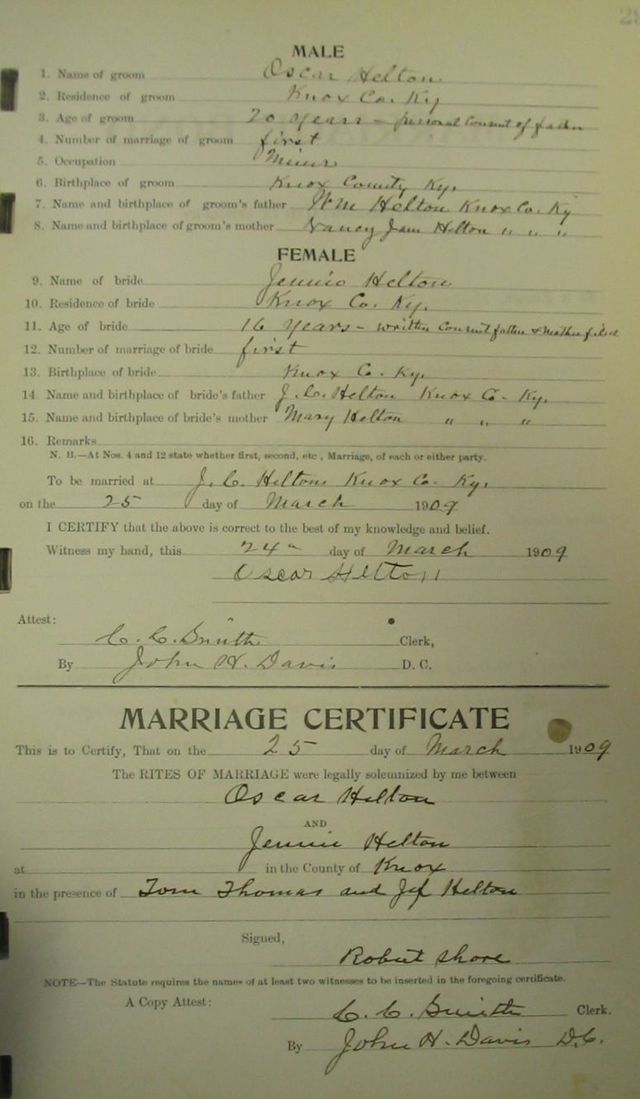 MALE
1. Name of groom Oscar Helton
2. Residence of groom Knox Co. Ky
3. Age of groom 20 years – personal consent of father
4. Number of marriage of groom first
5. Occupation Miner
6. Birthplace of groom Knox County Ky.
7. Name and birthplace of groom's father Wm Helton Knox Co. Ky
8. Name and birthplace of groom's mother Nancy Jane Helton " " "
FEMALE
9. Name of bride Jennie Helton
10. Residence of bride Knox Co. Ky.
11. Age of bride 16 years – written consent father & mother filed
12. Number of marriage of bride first
13. Birthplace of bride Knox Co. Ky.
14 Name and birthplace of bride's father J. C. Helton Knox Co. Ky.
15. Name and birthplace of bride's mother Mary Helton " " "
16. Remarks
N. B.—At Nos. 4 and 12 state whether first, second, etc , Marriage, of each or either party.
To be married at J. C. Heltons Knox Co. Ky.
on the 25 day of March 1909
I CERTIFY that the above is correct to the best of my knowledge and belief.
Witness my hand, this 24" day of March 1909
Oscar Helton
Attest:
C. C. Smith Clerk,
By John H. Davis D. C.
MARRIAGE CERTIFICATE
This is to Certify, That on the 25 day of March 1909
The RITES OF MARRIAGE were legally solemnized by me between
Oscar Helton
AND
Jennie Helton
at in the County of Knox
in the presence of Tom Thomas and Jef Helton
Signed,
Robert Shore
NOTE—The Statute requires the names of at least two witnesses to be inserted in the foregoing certificate.
A Copy Attest: C. C. Smith Clerk.
By John H. Davis D.C.